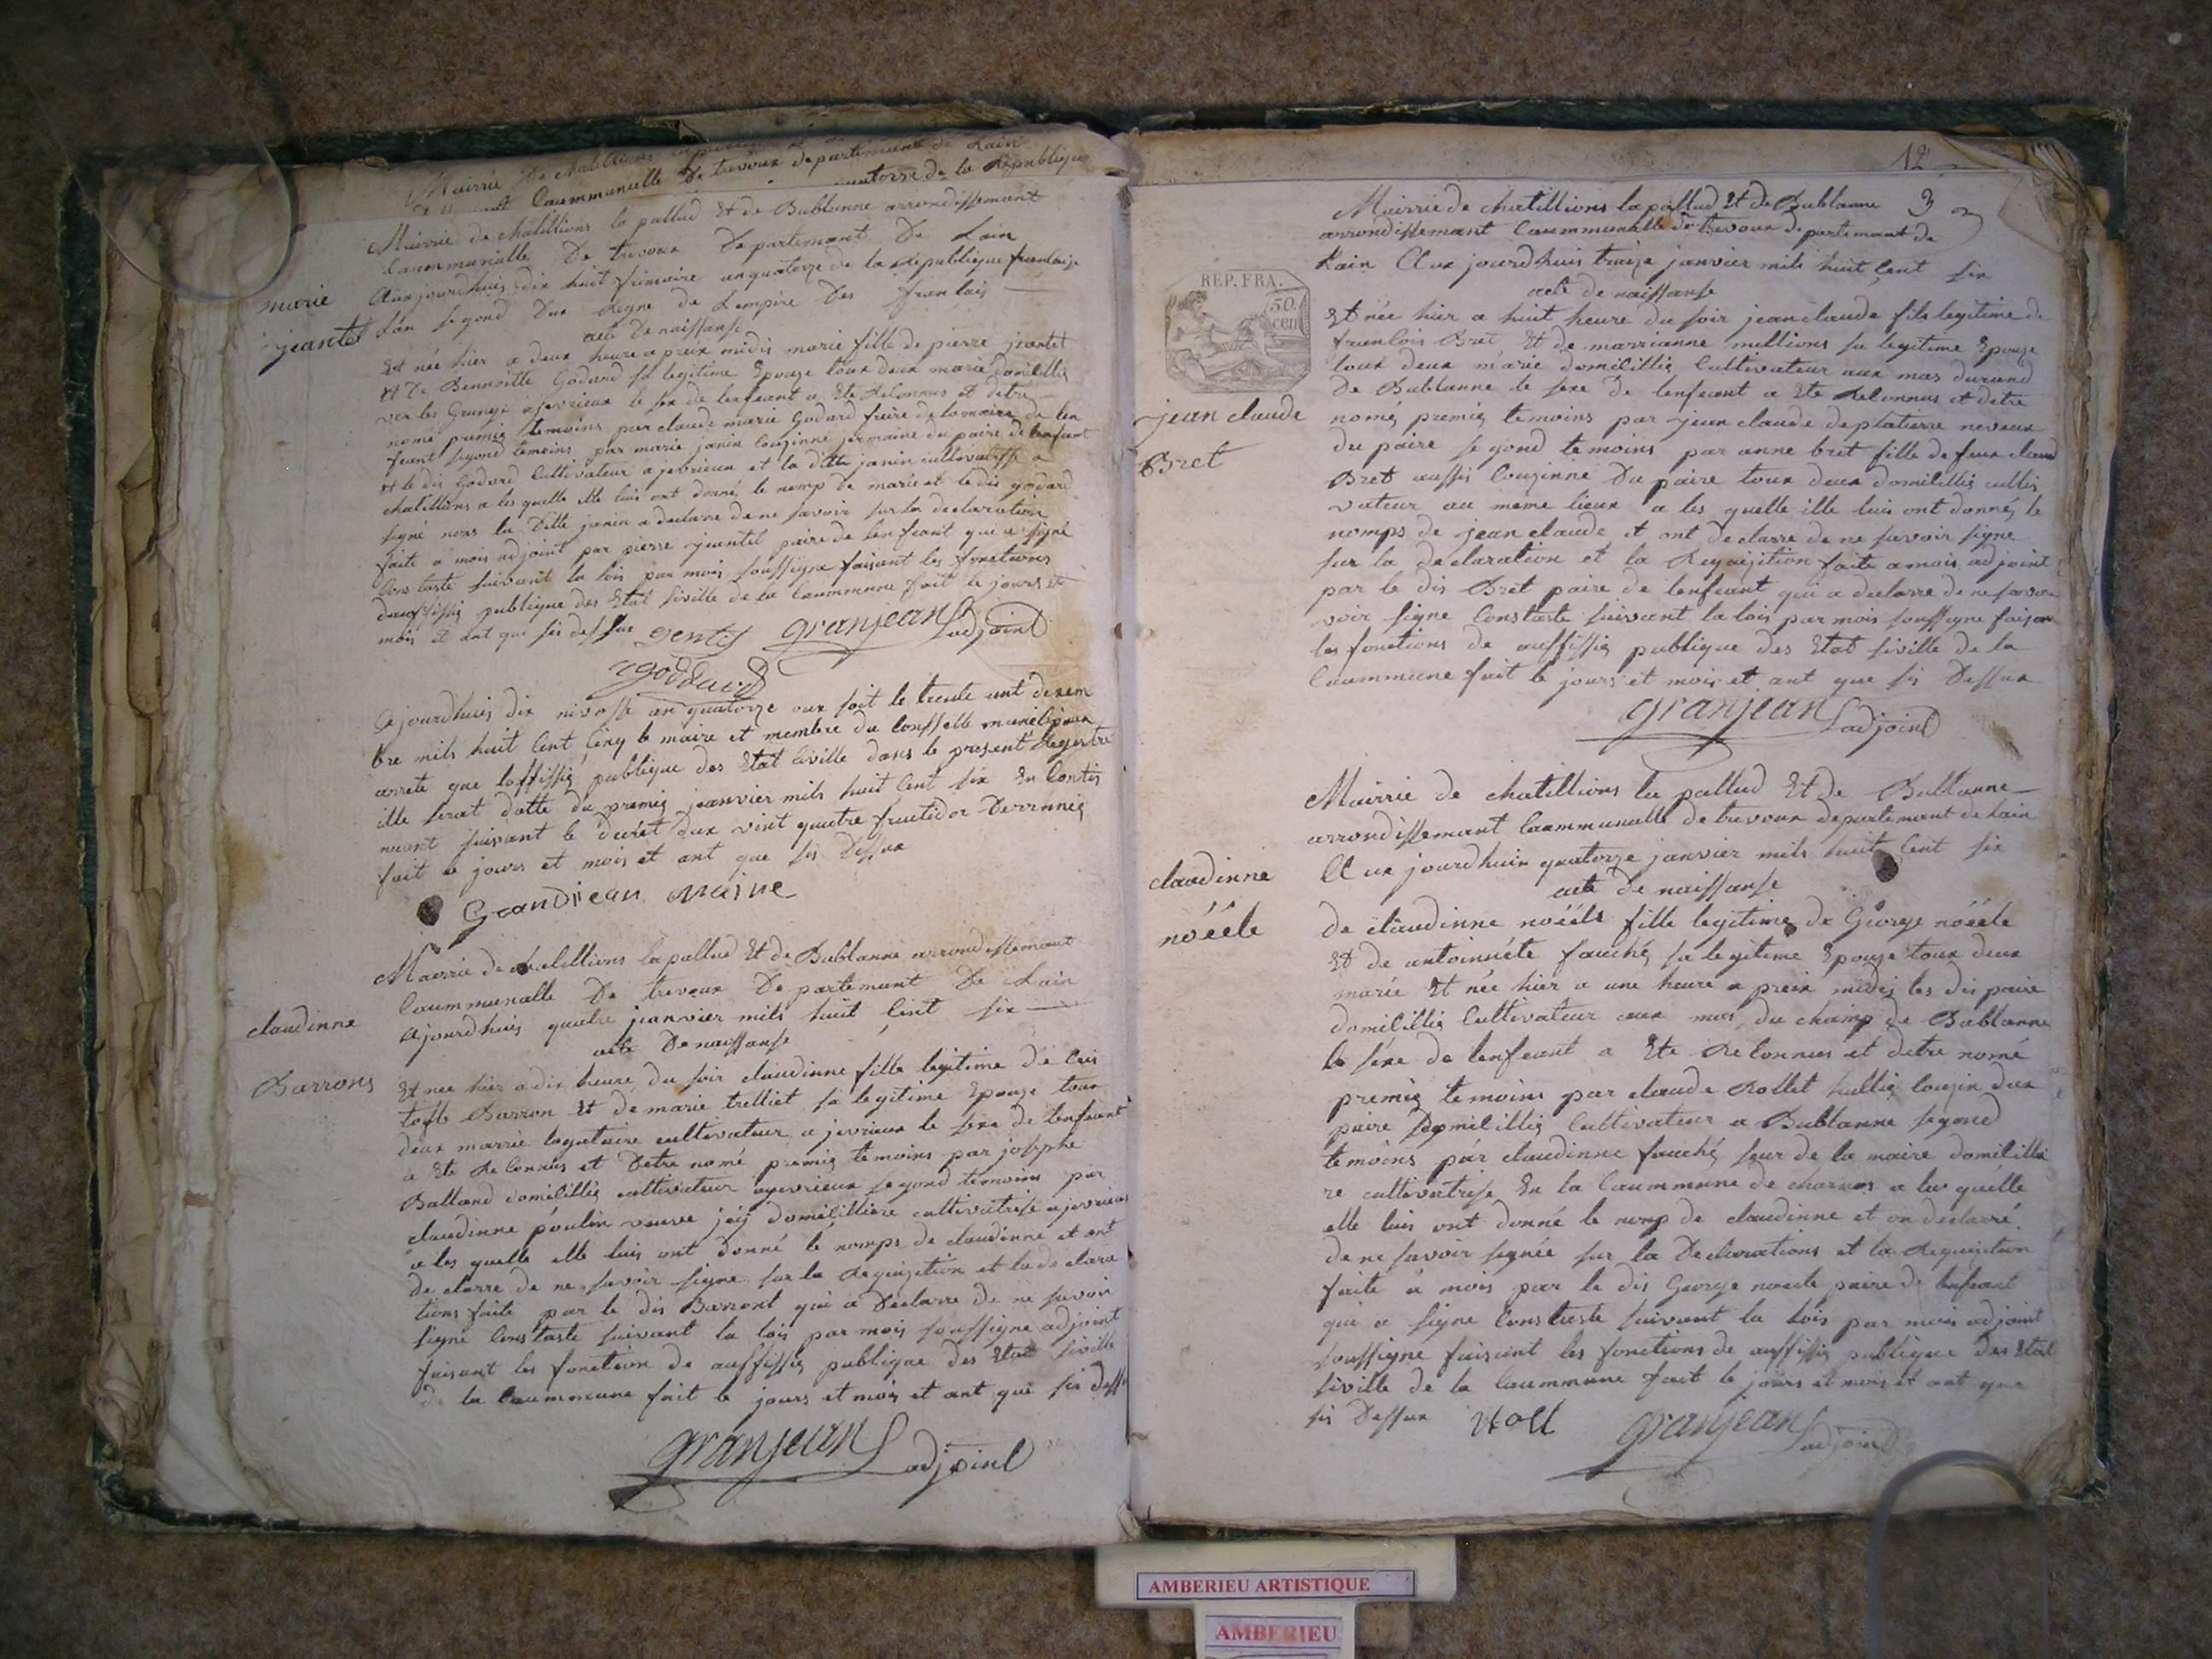 Mairrie De chatillions
Caummunalle De trevoux departemant de Lain
quatorze de la Republique
Mairrie de chatillions la pallud Et de Bublanne arrondissemant
Caummunalle De trevoux Departemant De Lain
Aux jourdhuis dix huit frimaire an quatorze de la Republique franlaise
Lan segond Dux Regne de Lempire Des franlais
acte De naissanse
marie
jeantet
Et née hier a deux heure a preix midis marie fille de pierre jeantet
et De Bennoitte Godard sa legitime Epouze toux deux marie domicillis
ver les Grange a jevrieux le sex de lenfeant a Ete Relonnus et detre
nomé premié temoins par claude marie Godard freire de la maire de len
feant segond temoins par marie janin Couzinne jermaine du paire de lenfeant
et le dis Godard Cultivateur a jevrieux et la ditte janin cultivatrisse a
chatillions a les quelle elle luis ont donné le nomp de marie et le dis godard
signé nons la Ditte janin a declarre de ne savoir sur la declaration
faite a mois adjoint par pierre jeantet paire de lenfeant qui a signé
Constaste suivant la lois par mois soussigne faisant les fonctions
dauffissié publique des Etat siville de la Caummune fait le jours et
mois et ant que sis dessux gentis granjean Ladjoint
godduard
Ajourdhuis dix nivosse an quatorze oux soit le trente unt desem
bre mils huit Cent Cinq le maire et membre du Conselle municipaux
arrete que loffissié publique des Etat Civille dans le present Regertre
ille serat datte du premié jeanvier mils huit Cent six En Contis
nuant suivant le decret dux vint quatre fructidor Dernnié
fait le jours et mois et ant que sis Dessux
Grandjean Maire
Mairrie de chatillions la pallud Et de Bublanne arrondissemant
Caummunalle De trevoux Departemant De Lain
ajourdhuis quatre jeanvier mils huit Cent six
acte De naissanse
claudinne
Barrons
Et nee hier a dix heure du soir claudinne fille legitime de Cris
tofle Barron Et de marie trelliet sa legitime Epouze toux
deux marrié cultivateur a jevrieux le sexe de lenfeant
a Ete Relonnus et Detre nomé premié temoins par josephe
Balland domicillié cultivateur ajevrieux segond temoins par
claudinne poulin veuve domicilliere cultivatrise ajevrieux
a les quelle elle luis ont donné le nomps de claudinne et ont
declarre de ne savoir signe sur la Requizition et la declara
tions faite par le dis Barront qui a Declarre de ne savoir
signe Constaste suivant la lois par mois soussigne adjoint
faisant les fonction de auffissié publique des Etat siville
de la Caummune fait le jours et mois et ant que sis dessu
granjean Ladjoint
12
3
Mairrie de chatillions la pallud Et de Bublanne
arrondissemant Caummunalle de trevoux departemant de
Lain Aux jourdhuis traize janvier mils huit Cent six
acte de naissanse
REP. FRA.
50.
cen
jean claude
Bret
Et née hier a huit heure du soir jean claude fils legitime de
franlois Bret Et de marrianne millions sa legitime Epouze
toux deux marie domicillié Cultivateur aux mas durand
De Bublanne le sexe De lenfeant a Ete Relonnus et detre
nomé premié temoins par jean claude deplatierre neveux
du paire segond temoins par anne bret fille de feux claud
Bret aussis Couzinne Du paire toux deux domicillié cultis
vateur au meme lieux a les quelle ille luis ont donné le
nomps de jean claude et ont declarre de ne savoir signe
sur la declaration et la Requizition faite amois adjoint
par le dis Bret paire de lenfeant qui a declarre de ne savoir
voir signe Constaste suivant la lois par mois soussigne faisan
les fonctions de auffissié publique des Etat siville de la
Caummune fait le jours et mois et ant que sis Dessux
granjean Ladjoint
Mairrie de chatillions la pallud Et de Bublanne
arrondissemant Caummunalle de trevoux departemant de Lain
Aux jourdhuis quatorze janvier mils huit Cent six
acte de naissanse
claudinne
nóéele
de claudinne noééle fille legitime de George nóéele
Et de antoinéete fauché sa legitime Epouze toux deux
marie Et née hier a une heure a preix midis les dis paire
domicillié Cultivateur aux mas du champ de Bublanne
le sexe de lenfeant a Ete Relonnus et detre nomé
premié temoins par claude Rollet Couzin dux
paire domicillié Cultivateur a Bublanne segond
temoins par claudinne fauché seur de la maire domicillie
re cultivatrise En la Caummune de charnos a la quélle
elle luis ont donné le nomp de claudinne et on declarré
de ne savoir signée sur la Declarations et la Requizition
faite a mois par le dis George noeele paire de lenfeant
qui a signe Constaste suivant la lois par mois adjoint
soussigne faisant les fonctions de auffissié publique des Etat
siville de la Caummune fait le jours et mois et ant que
sis Dessux Noel granjean Ladjoint
AMBERIEU ARTISTIQUE
AMBERIEU